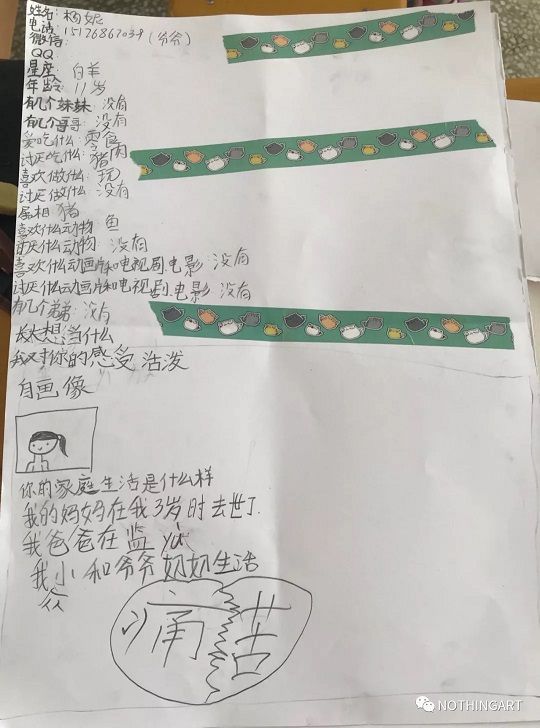 姓名：杨妮
电话：15176867034（爷爷）
微信：
QQ：
星座：白羊
年龄：11岁
有几个妹妹：没有
有几个哥哥：没有
爱吃什么：零食
讨厌吃什么：猪肉
喜欢做什么：玩
讨厌做什么：没有
属相：猪
喜欢什么动物：鱼
讨厌什么动物：没有
喜欢什么动画片和电视剧.电影：没有
讨厌什么动画片和电视剧.电影：没有
有几个弟弟：没有
长大想当什么
我对你的感受 活泼
自画像
你的家庭生活是什么样
我的妈妈在我3岁时去世了.
我爸爸在监yù
我 小和爷爷奶奶生活
从
痛苦
NOTHINGART